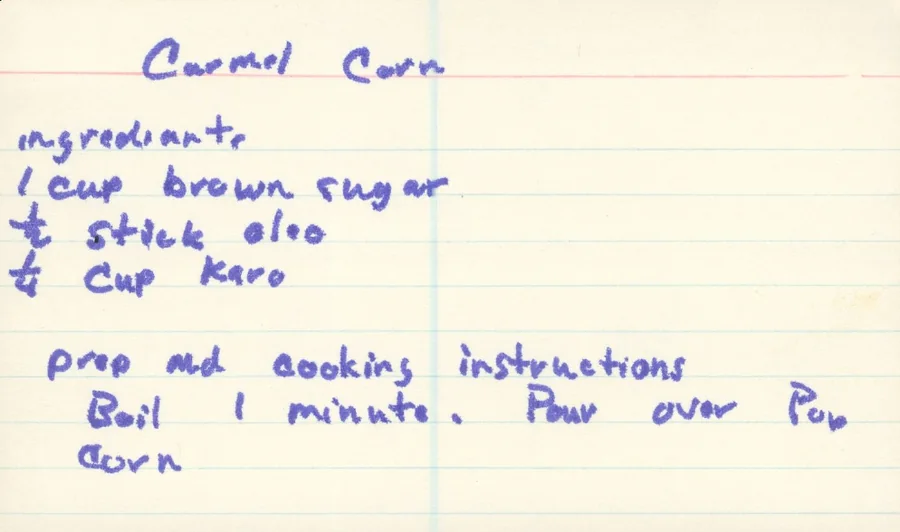 Carmel Corn
ingrediants
1 cup brown sugar
½ stick oleo
¼ cup Karo
prep and cooking instructions
Boil 1 minute. Pour over Pop
Corn